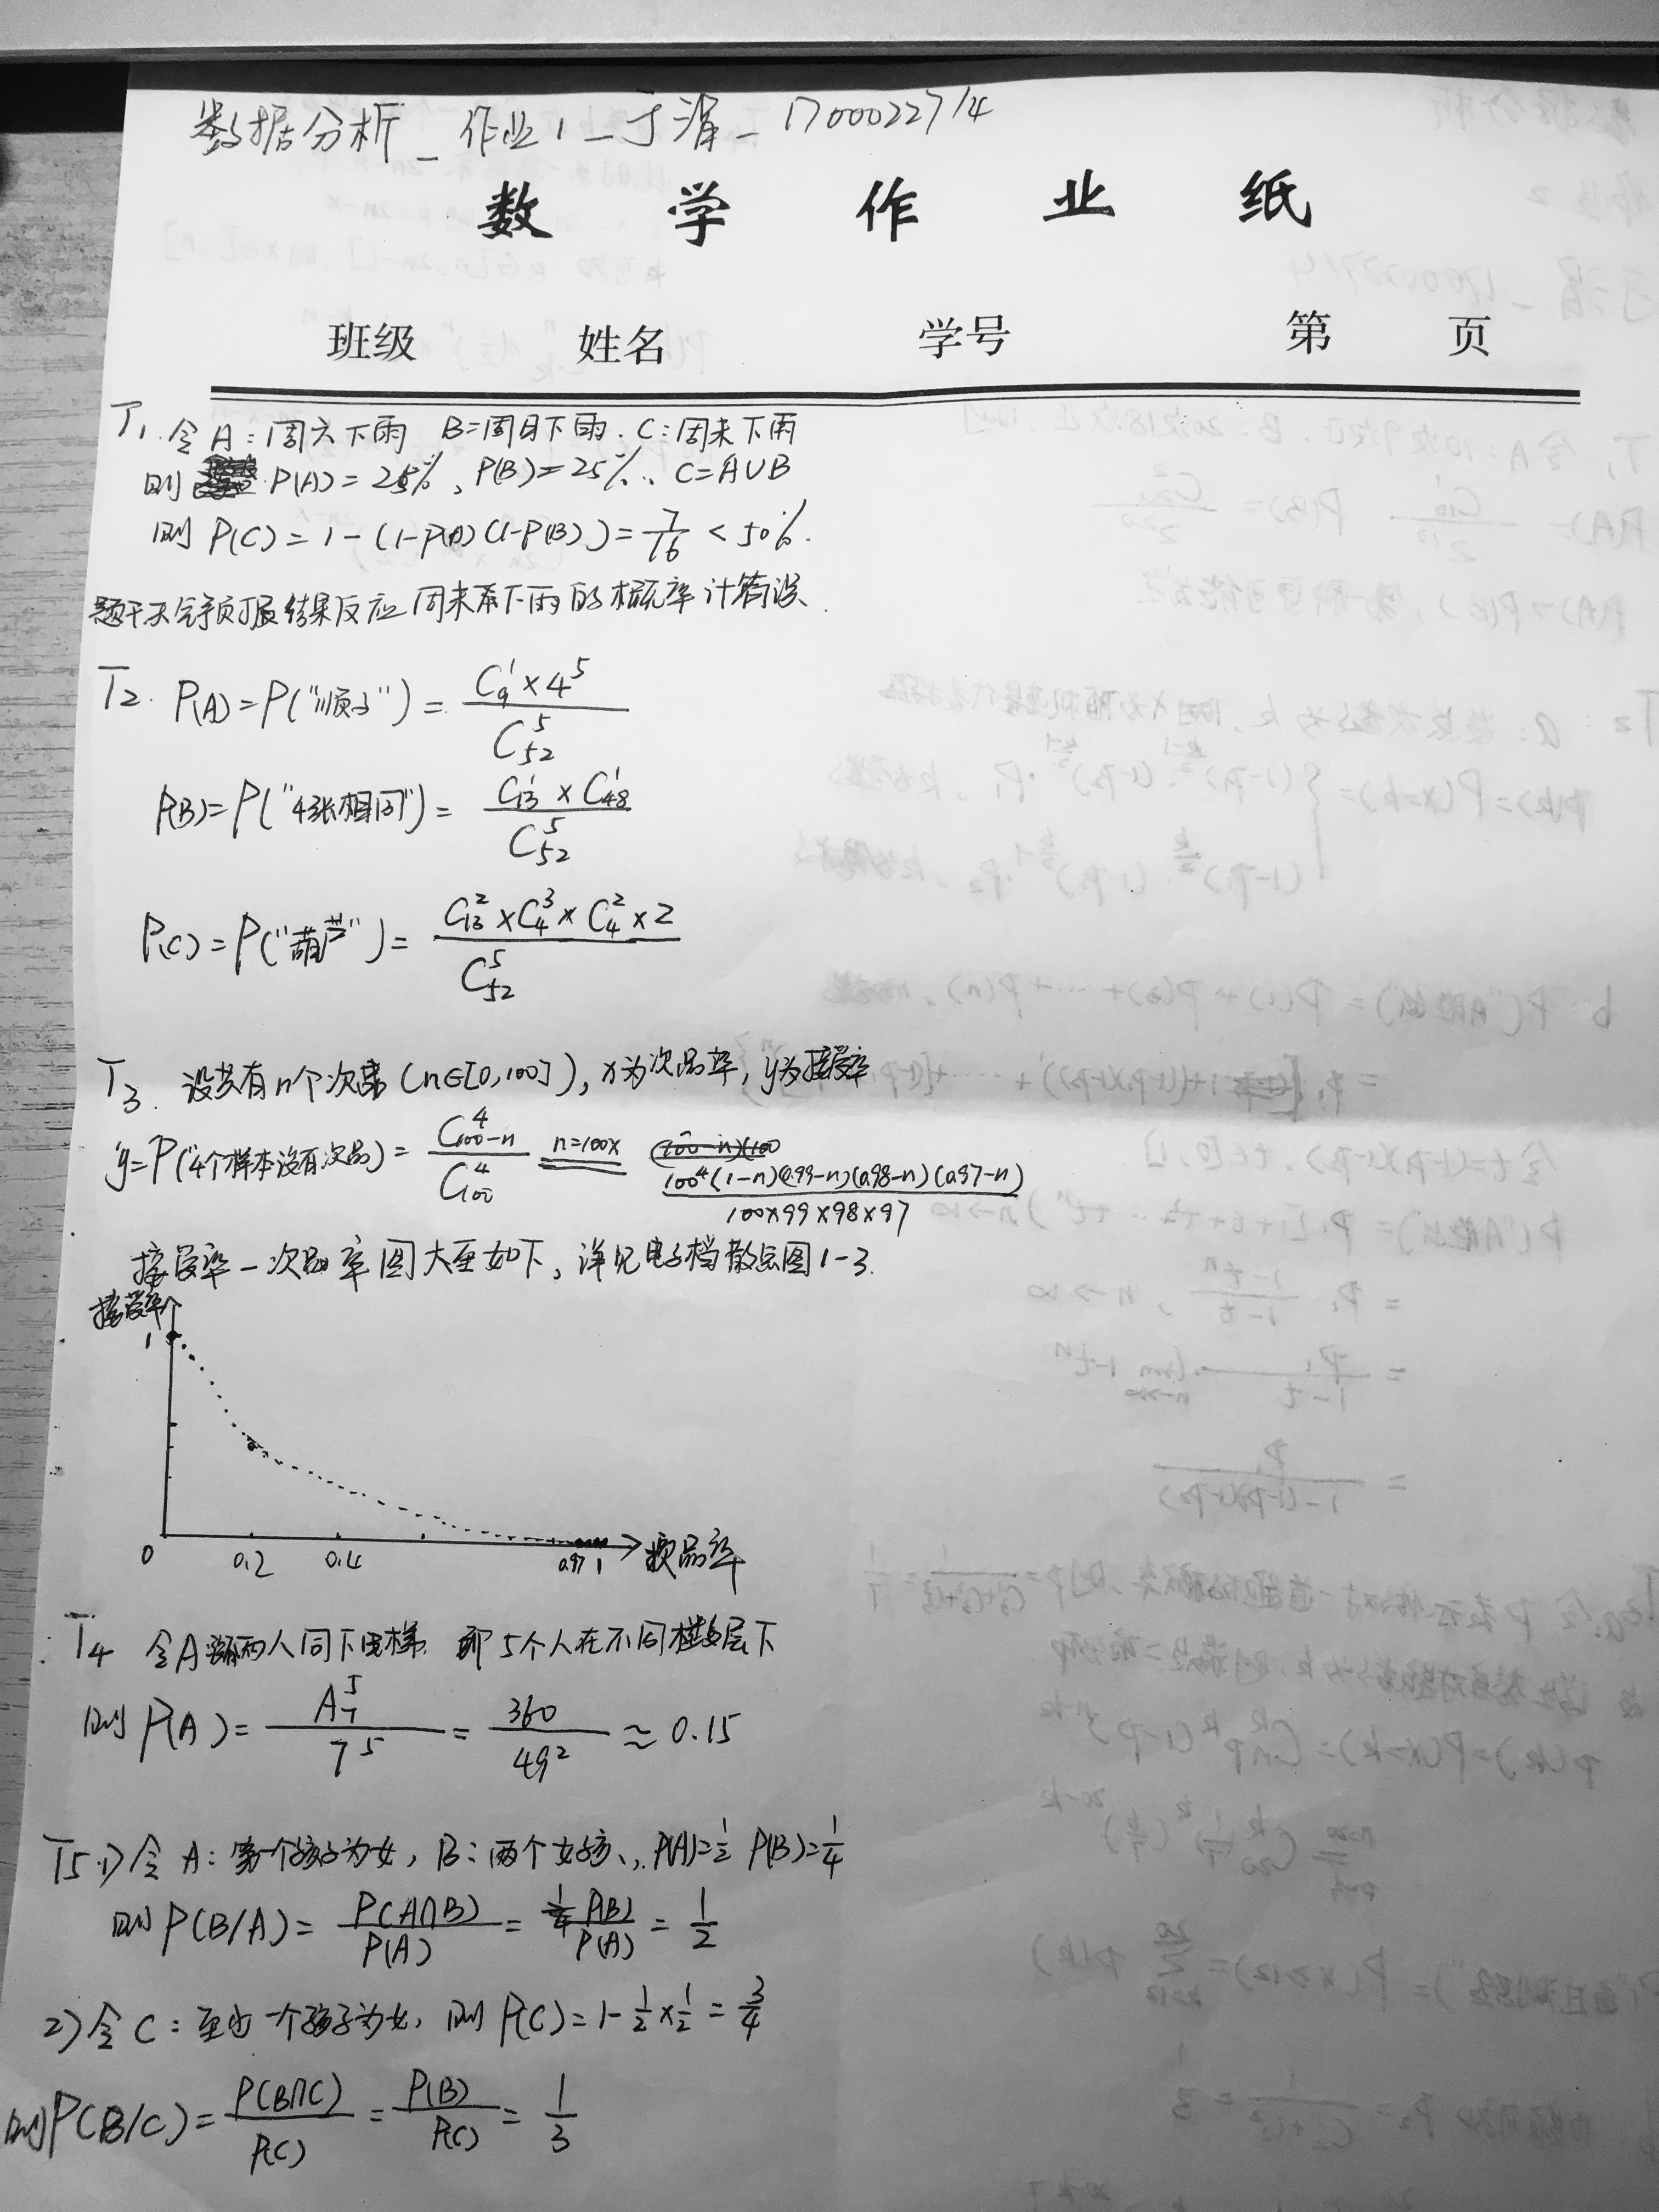 数据分析_作业1_于渭_1700022714
数学作业纸
班级 姓名 学号 第 页
T1. 令A:周六下雨 B=周日下雨. C:周末下雨
则 P(A)=25%、P(B)=25%、C=A∪B
则 P(C)=1-(1-P(A)(1-P(B))=7/16<50%.
题干天气预报结果反应周末不下雨的概率计算误.
T2. P(A)=P("顺子")=C_9^1×4^5/C_52^5
P(B)=P("4张相同")=C_13^1×C_48^1/C_52^5
P(C)=P("葫芦")=C_13^2×C_4^3×C_4^2×2/C_52^5
T3. 设共有n个次品(n∈[0,100]),x为次品率,y为接受率
y=P("4个样本没有次品)=C_{100-n}^4/C_100^4 (n=100x)= 100^4(1-n)(0.99-n)(0.98-n)(0.97-n)/100×99×98×97
接受率-次品率图大至如下,详见电子档散点图1-3.
接受率
1
0 0.2 0.4 0.97 1 次品率
T4 令A 两人同下电梯 即5个人在不同楼层下
则P(A)=A_7^5/7^5=360/49^2≈0.15
T5.1)令A:第一个孩子为女,B:两个女孩、∴P(A)=1/2 P(B)=1/4
则P(B/A)=P(A∩B)/P(A)=P(B)/P(A)=1/2
2)令C:至少一个孩子为女,则P(C)=1-1/2×1/2=3/4
则P(B/C)=P(B∩C)/P(C)=P(B)/P(C)=1/3